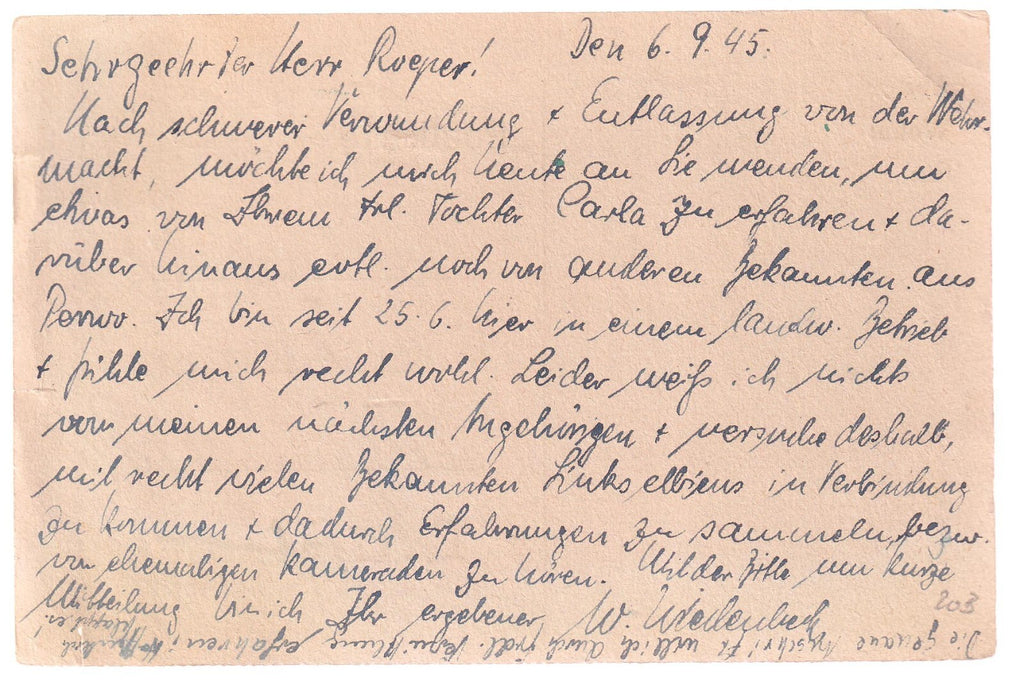 Den 6.9.45.
Sehrgeehrter Herr Roeper!
Nach schwerer Verwundung + Entlassung von der Wehr-
macht, möchte ich mich heute an Sie wenden, um
etwas von Ihrem Frl. Tochter Carla zu erfahren + da-
rüber hinaus evtl. noch von anderen Bekannten aus
Perwv. Ich bin seit 25.6. hier in einem landw. Betrieb
+ fühle mich recht wohl. Leider weiß ich nichts
von meinen nächsten Angehörigen + versuche deshalb,
mit recht vielen Bekannten Linkselbiens in Verbindung
zu kommen + dadurch Erfahrungen zu sammeln, bezw.
von ehemaligen Kameraden zu hören. Mit der Bitte um kurze
Mitteilung bin ich Ihr ergebener W. Wiedenbeck
203
Die genaue Anschrift will ich durch frdl. erfahren;